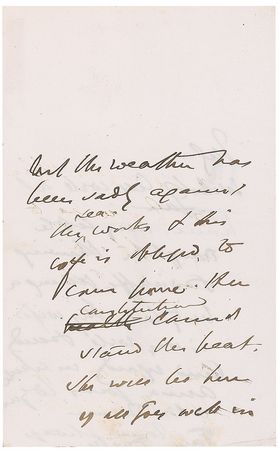 but the weather has
been sadly against
sea
the works & his
is obliged to
come home. Her
constitution
health cannot
stand the heat.
She will be here
if all goes well in